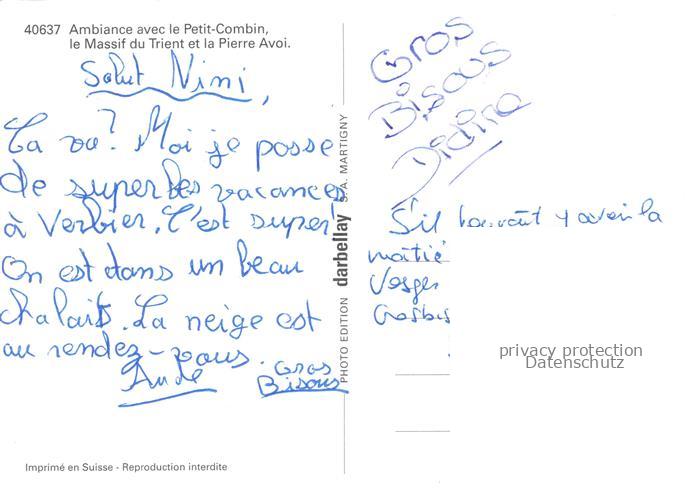 40637 Ambiance avec le Petit-Combin,
le Massif du Trient et la Pierre Avoi.
Salut Nini,
Ca va? Moi je passe
de superbes vacances
à Verbier. C'est super!
On est dans un beau
chalait. La neige est
au rendez-vous.
Aude
Gros
Bisous
PHOTO EDITION darbellay S.A. MARTIGNY
Gros
Bisous
Didine
S'il la
moitié
Vosges
privacy protection
Datenschutz
Imprimé en Suisse - Reproduction interdite